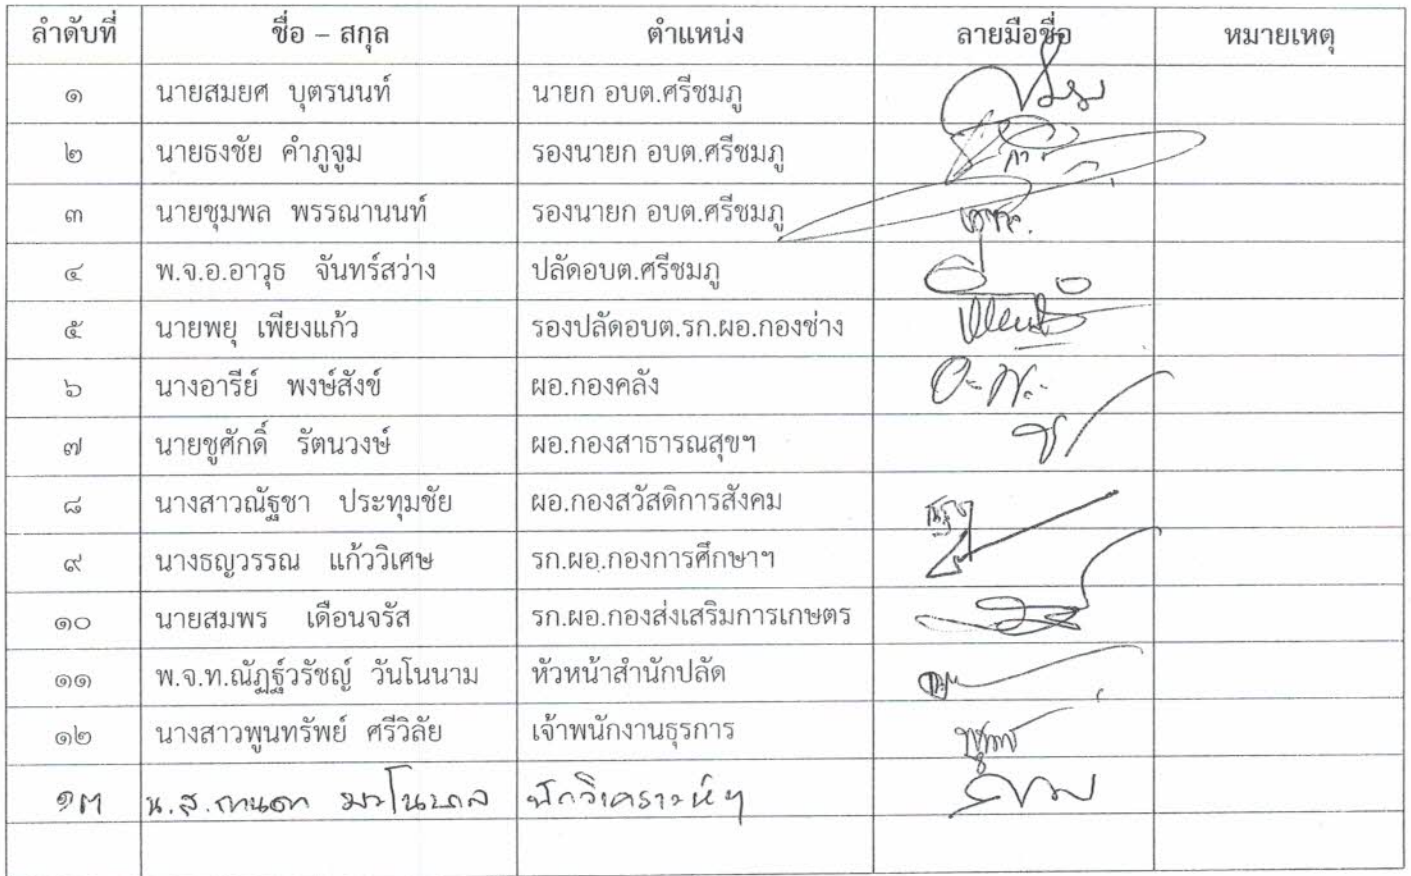 ลำดับที่ ชื่อ – สกุล ตำแหน่ง ลายมือชื่อ หมายเหตุ
๑ นายสมยศ บุตรนนท์ นายก อบต.ศรีชมภู
๒ นายธงชัย คำภูจูม รองนายก อบต.ศรีชมภู
๓ นายชุมพล พรรณานนท์ รองนายก อบต.ศรีชมภู
๔ พ.จ.อ.อาวุธ จันทร์สว่าง ปลัดอบต.ศรีชมภู
๕ นายพยุ เพียงแก้ว รองปลัดอบต.รก.ผอ.กองช่าง
๖ นางอารีย์ พงษ์สังข์ ผอ.กองคลัง
๗ นายชูศักดิ์ รัตนวงษ์ ผอ.กองสาธารณสุขฯ
๘ นางสาวณัฐชา ประทุมชัย ผอ.กองสวัสดิการสังคม
๙ นางธญวรรณ แก้ววิเศษ รก.ผอ.กองการศึกษาฯ
๑๐ นายสมพร เดือนจรัส รก.ผอ.กองส่งเสริมการเกษตร
๑๑ พ.จ.ท.ณัฏฐ์วรัชญ์ วันโนนาม หัวหน้าสำนักปลัด
๑๒ นางสาวพูนทรัพย์ ศรีวิลัย เจ้าพนักงานธุรการ
๑๓ น.ส. นักวิเคราะห์ฯ